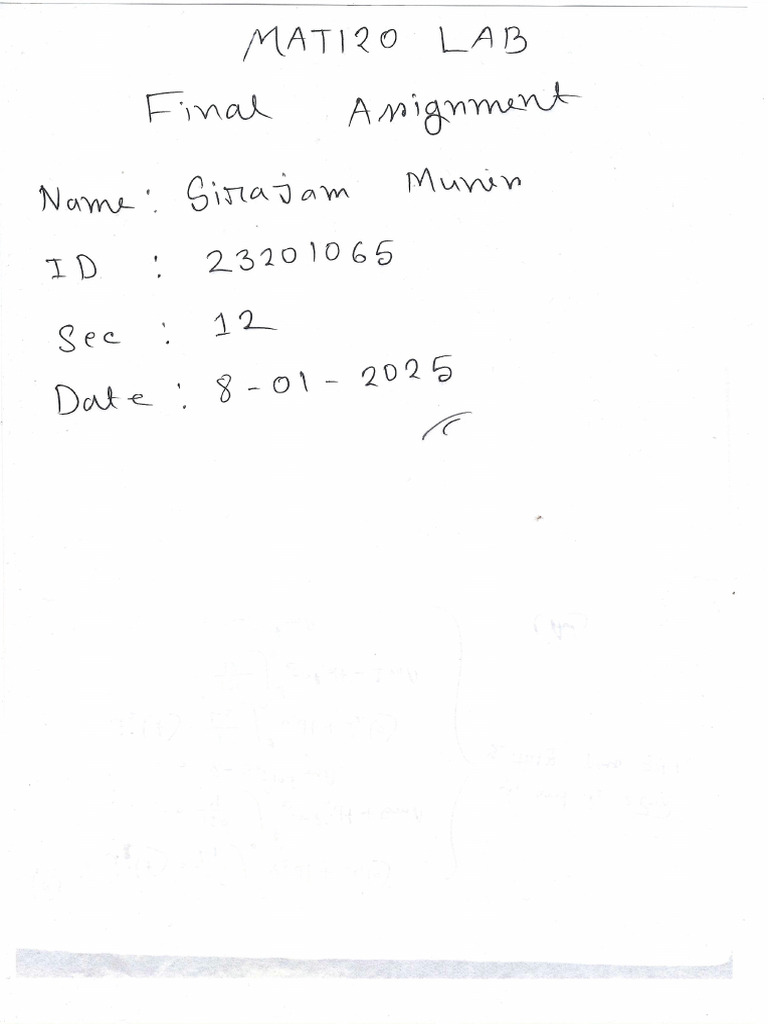 MAT120 LAB
Final Assignment
Name: Sirajam Munir
ID : 23201065
Sec : 12
Date : 8-01-2025